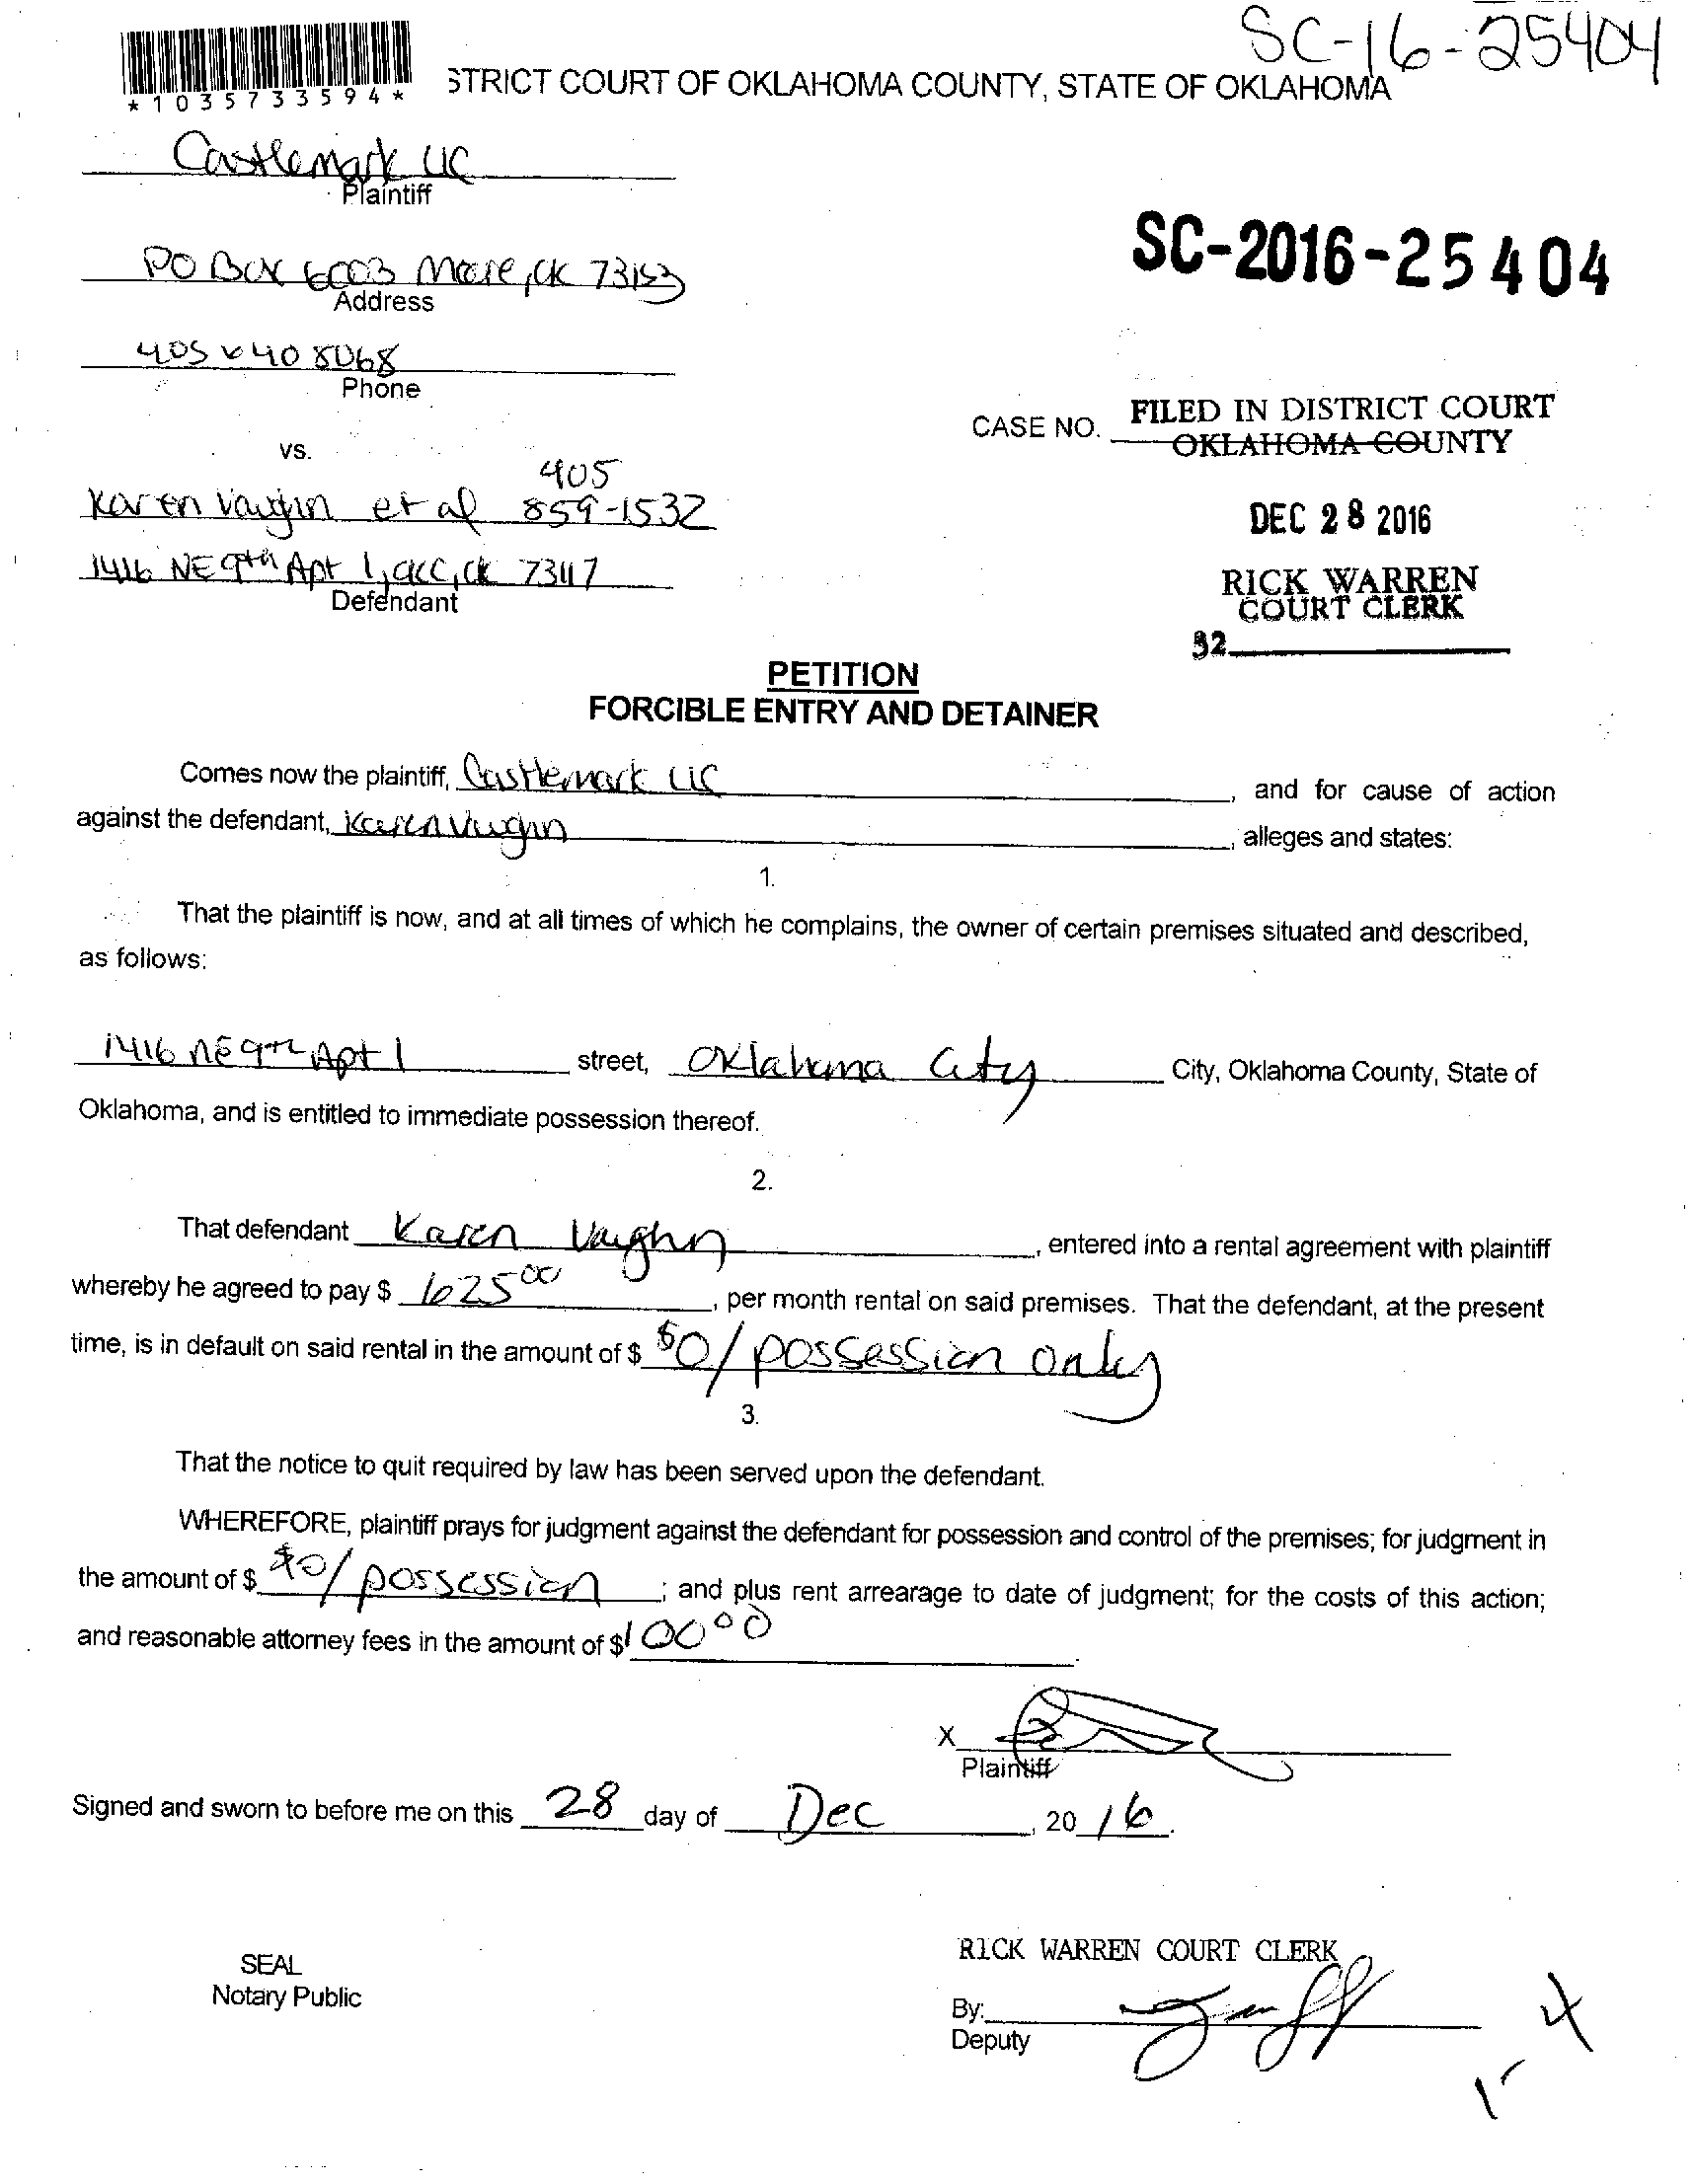 SC-16-25404
*1035733594*
STRICT COURT OF OKLAHOMA COUNTY, STATE OF OKLAHOMA
Castlemark LLC
Plaintiff
PO Box 6003 Moore, OK 73153
Address
SC-2016-25404
405 640 8068
Phone
CASE NO.
FILED IN DISTRICT COURT
OKLAHOMA COUNTY
vs.
405
Karen Vaughn et al 859-1532
DEC 28 2016
1416 NE 9th Apt 1, OKC, OK 73117
Defendant
RICK WARREN
COURT CLERK
32
PETITION
FORCIBLE ENTRY AND DETAINER
Comes now the plaintiff, Castlemark LLC, and for cause of action
against the defendant, Karen Vaughn, alleges and states:
1.
That the plaintiff is now, and at all times of which he complains, the owner of certain premises situated and described,
as follows:
1416 NE 9th Apt 1 street, Oklahoma City City, Oklahoma County, State of
Oklahoma, and is entitled to immediate possession thereof.
2.
That defendant Karen Vaughn, entered into a rental agreement with plaintiff
whereby he agreed to pay $ 625 00, per month rental on said premises. That the defendant, at the present
time, is in default on said rental in the amount of $ $0/possession only
3.
That the notice to quit required by law has been served upon the defendant.
WHEREFORE, plaintiff prays for judgment against the defendant for possession and control of the premises; for judgment in
the amount of $ $0/possession; and plus rent arrearage to date of judgment; for the costs of this action;
and reasonable attorney fees in the amount of $100 00.
X
Plaintiff
Signed and sworn to before me on this 28 day of Dec, 20 16.
RICK WARREN COURT CLERK
SEAL
Notary Public
By:
Deputy